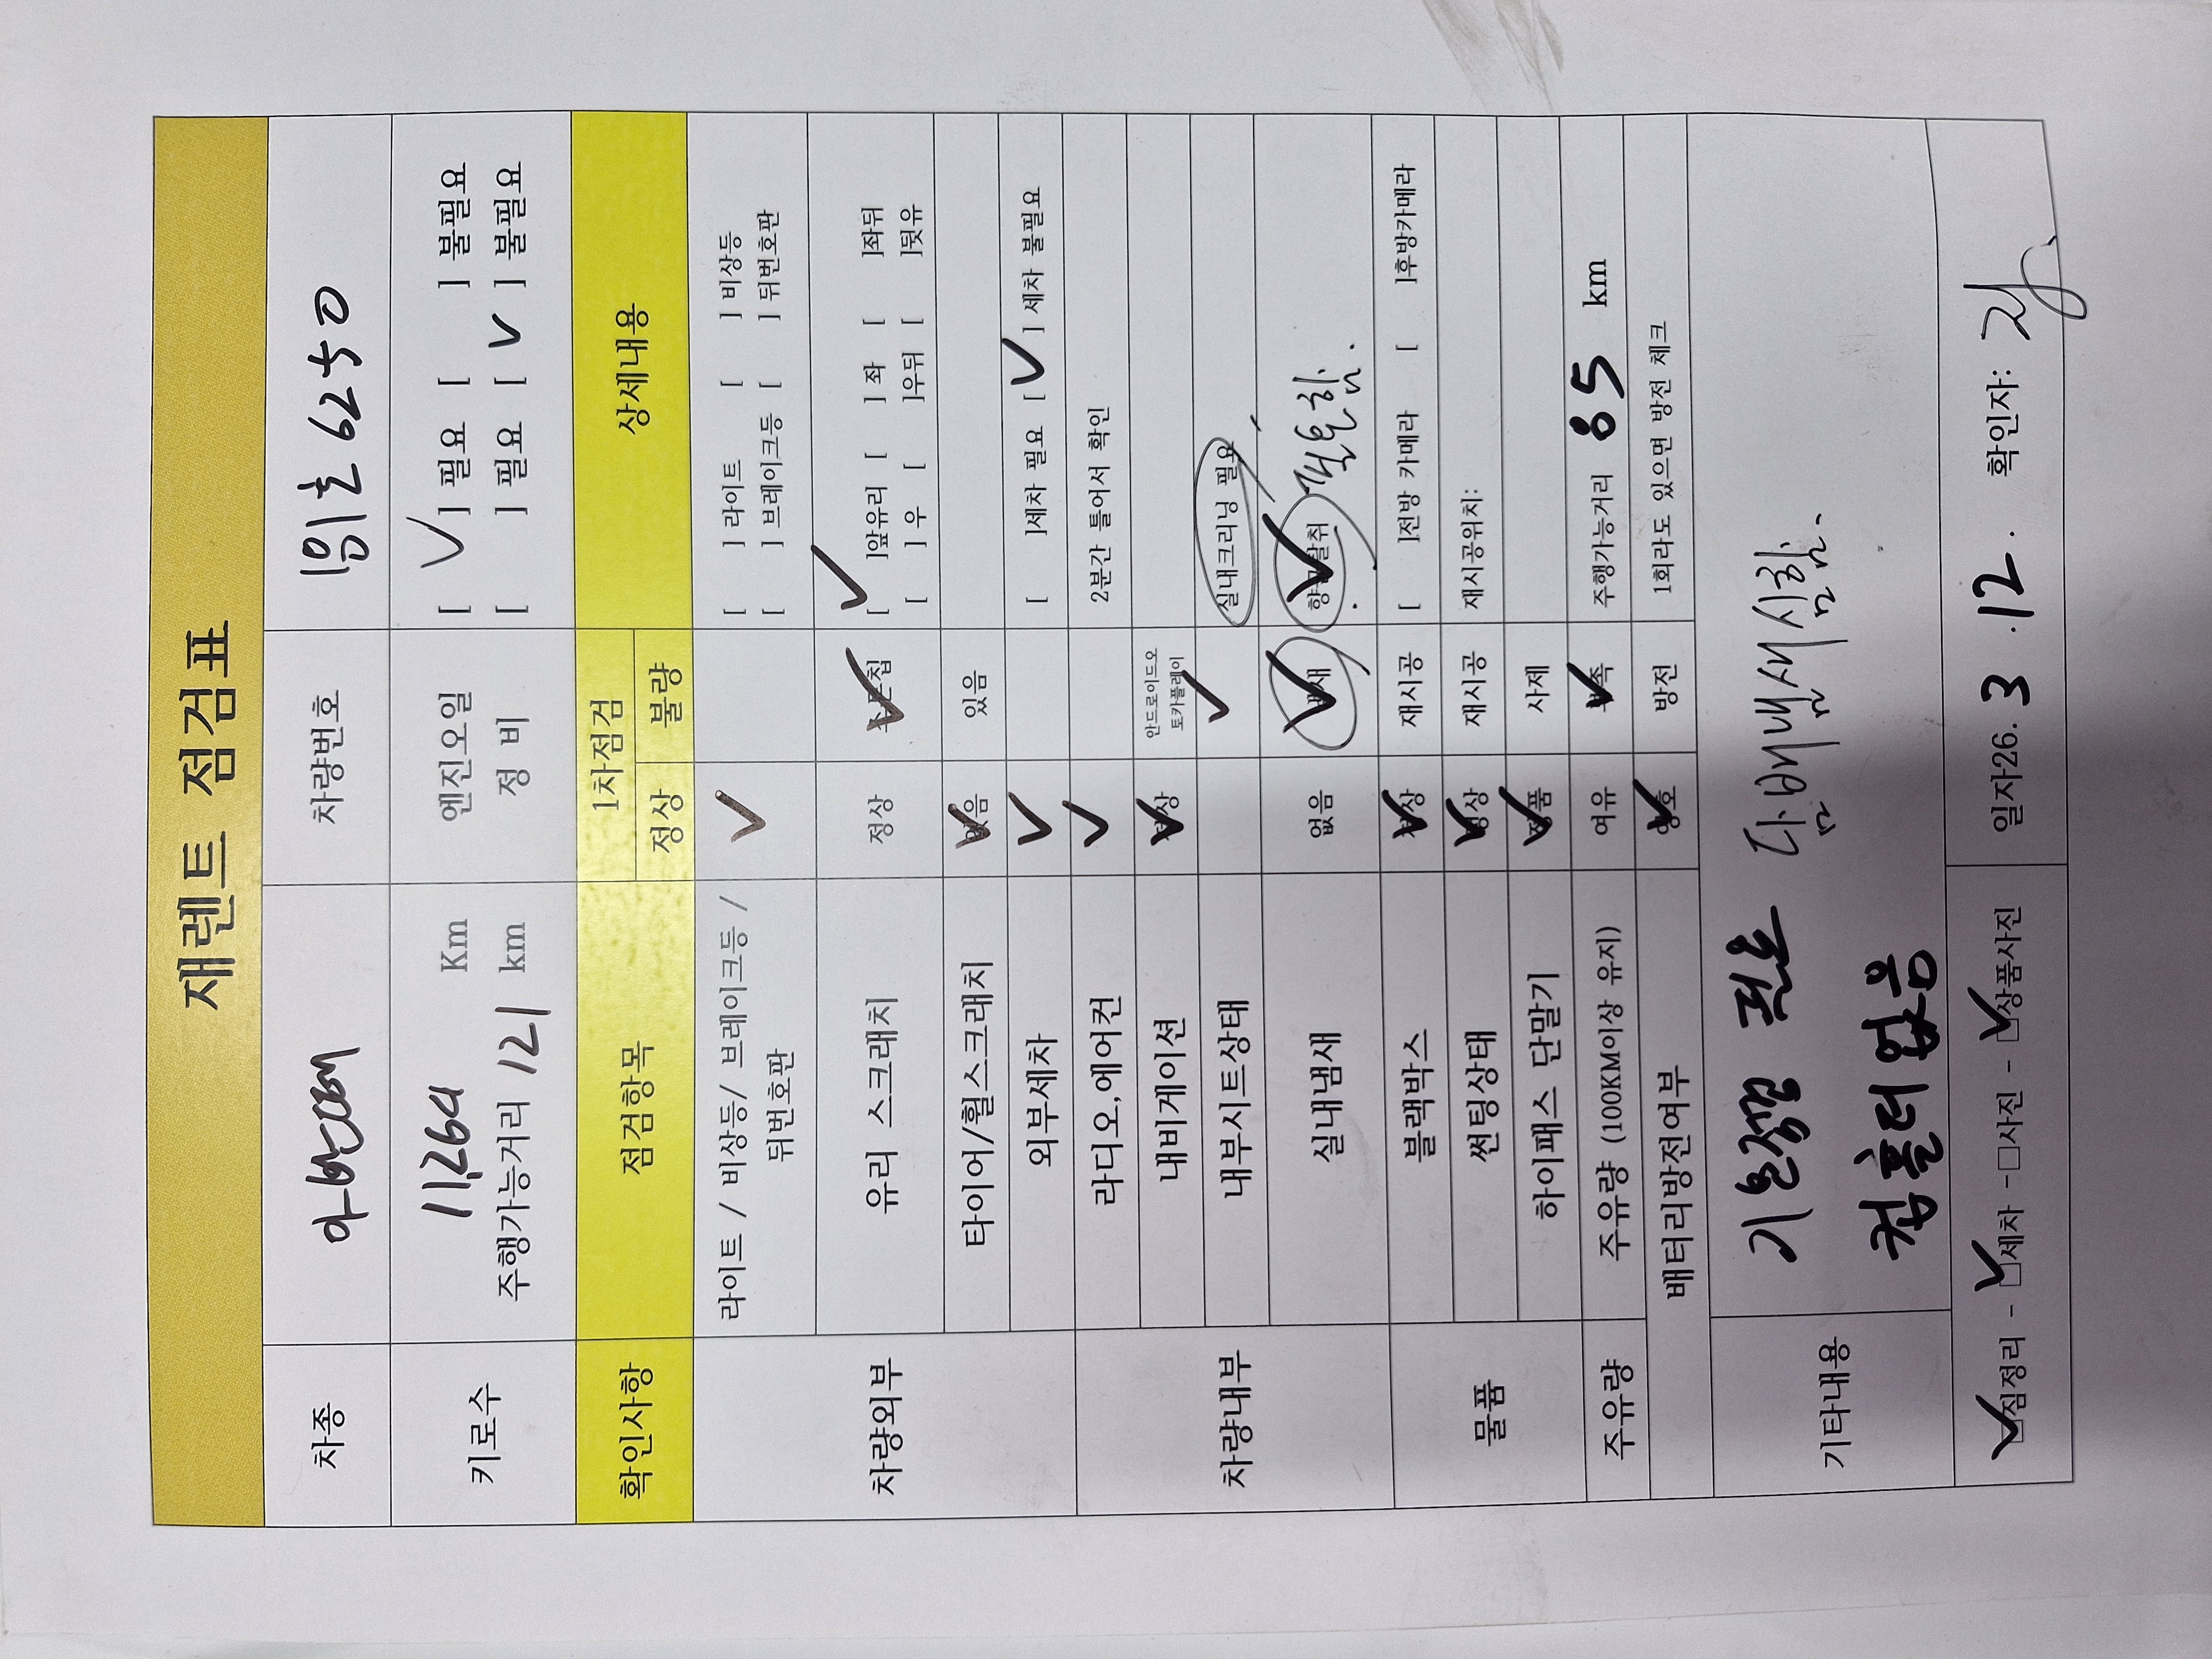 재렌트 점검표
차종 아반떼 차량번호 6250
키로수 11,264 Km 엔진오일 [ ✓ ] 필요 [ ] 불필요
주행가능거리 121 km 정 비 [ ] 필요 [ ✓ ] 불필요
확인사항 점검항목 1차점검 상세내용
정상 불량
차량외부 라이트 / 비상등/ 브레이크등 / 뒤번호판 ✓ [ ] 라이트 [ ] 비상등
[ ] 브레이크등 [ ] 뒤번호판
유리 스크래치 정상 ✓ [ ✓ ]앞유리 [ ] 좌 [ ]좌뒤
[ ] 우 [ ]우뒤 [ ]뒷유
타이어/휠스크래치 없음 ✓ 있음
외부세차 ✓ [ ]세차 필요 [ ✓ ] 세차 불필요
차량내부 라디오,에어컨 ✓ 2분간 틀어서 확인
내비게이션 정상 ✓ 안드로이드오
토카플레이
내부시트상태 ✓ 실내크리닝 필요
실내냄새 없음 냄새 ✓ 향균탈취 ✓
물품 블랙박스 정상 ✓ 재시공 [ ]전방 카메라 [ ]후방카메라
썬팅상태 정상 ✓ 재시공 재시공위치:
하이패스 단말기 정품 ✓ 사제
주유량 주유량 (100KM이상 유지) 여유 부족 ✓ 주행가능거리 85 km
배터리방전여부 양호 ✓ 방전 1회라도 있으면 방전 체크
기타내용 담배냄새심함.
컵홀더없음
☑짐정리 - ☑세차 -□사진 - ☑상품사진 일자26. 3 .12. 확인자: